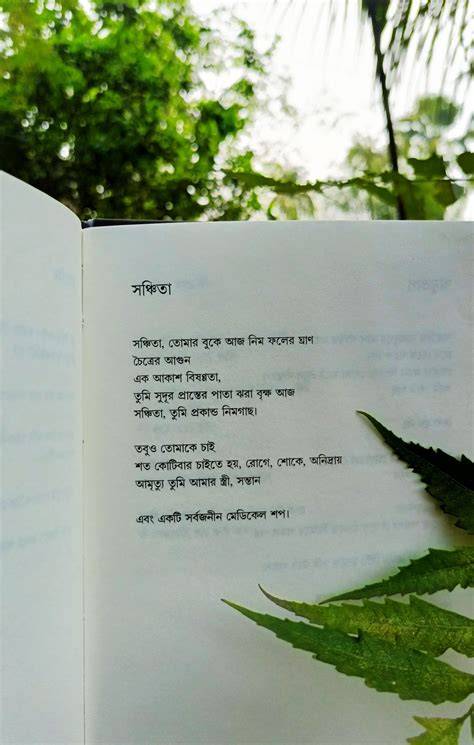 সঞ্চিতা
সঞ্চিতা, তোমার বুকে আজ নিম ফলের ঘ্রাণ
চৈত্রের আগুন
এক আকাশ বিষণ্ণতা,
তুমি সুদূর প্রান্তের পাতা ঝরা বৃক্ষ আজ
সঞ্চিতা, তুমি প্রকান্ড নিমগাছ।
তবুও তোমাকে চাই
শত কোটিবার চাইতে হয়, রোগে, শোকে, অনিদ্রায়
আমৃত্যু তুমি আমার স্ত্রী, সন্তান
এবং একটি সর্বজনীন মেডিকেল শপ।